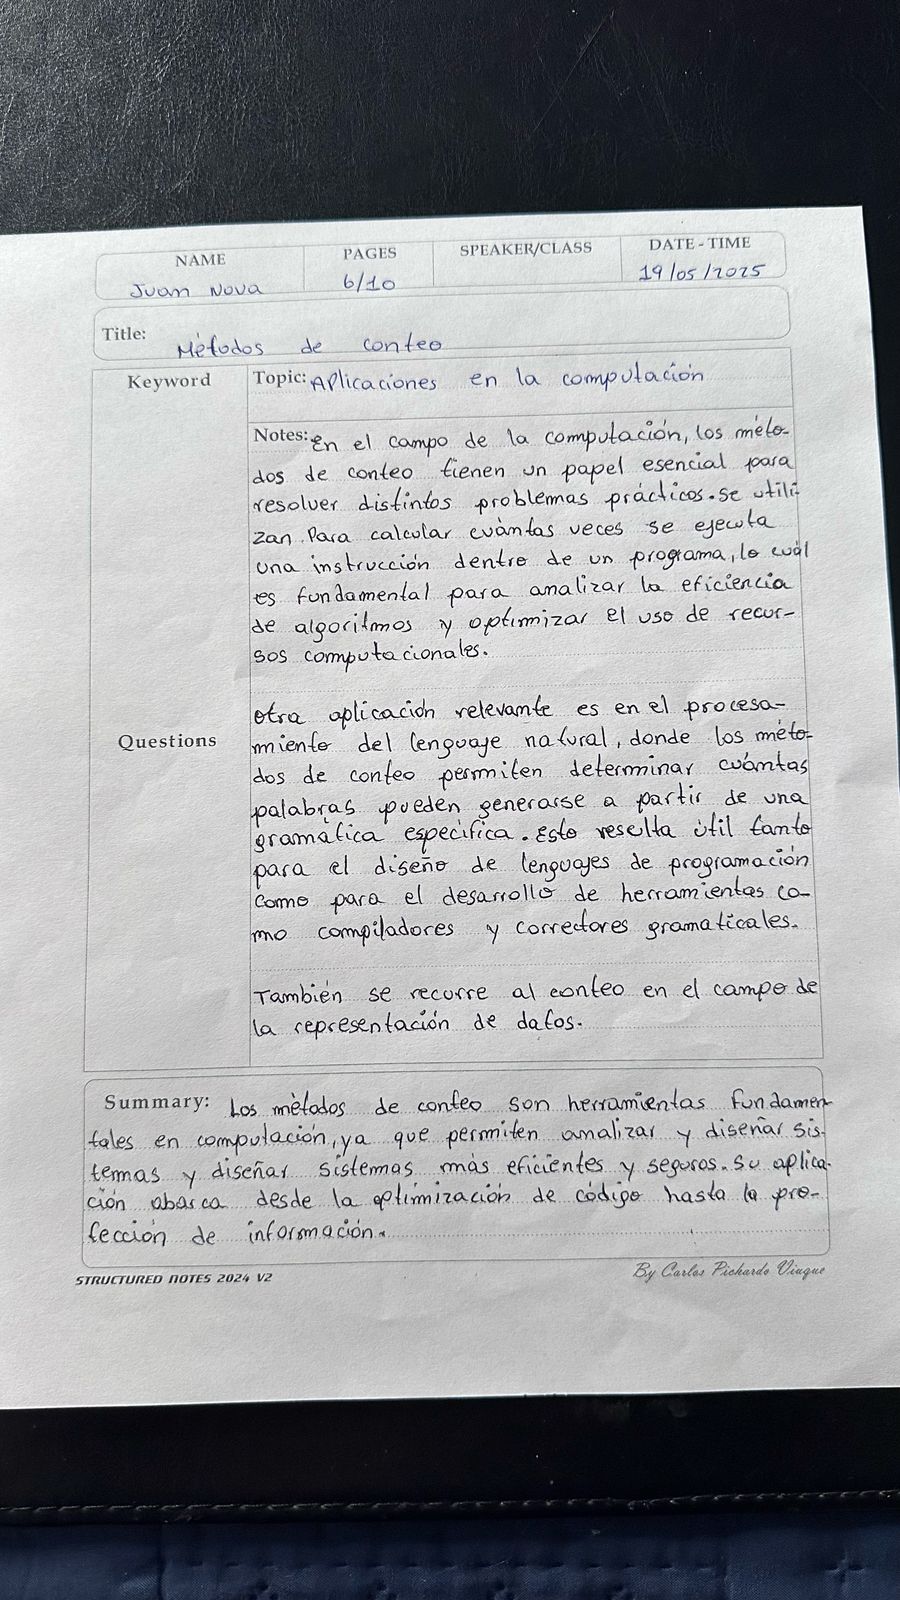 NAME PAGES SPEAKER/CLASS DATE-TIME
Juan Nova 6/10 19/05/2025
Title: Métodos de conteo
Keyword
Topic: Aplicaciones en la computación
Notes: En el campo de la computación, los méto-
dos de conteo tienen un papel esencial para
resolver distintos problemas prácticos. se utili-
zan para calcular cuántas veces se ejecuta
una instrucción dentro de un programa, lo cuál
es fundamental para analizar la eficiencia
de algoritmos y optimizar el uso de recur-
sos computacionales.
Otra aplicación relevante es en el procesa-
Questions
miento del lenguaje natural, donde los méto-
dos de conteo permiten determinar cuántas
palabras pueden generarse a partir de una
gramática específica. Esto reselta útil tanto
para el diseño de lenguajes de programación
como para el desarrollo de herramientas co-
mo compiladores y correctores gramaticales.
También se recurre al conteo en el campo de
la representación de datos.
Summary: Los métodos de conteo son herramientas fundamen-
tales en computación, ya que permiten analizar y diseñar sis-
temas y diseñar sistemas más eficientes y seguros. Su aplica-
ción abarca desde la optimización de código hasta la pro-
tección de información.
STRUCTURED NOTES 2024 V2
By Carlos Pichardo Viuque